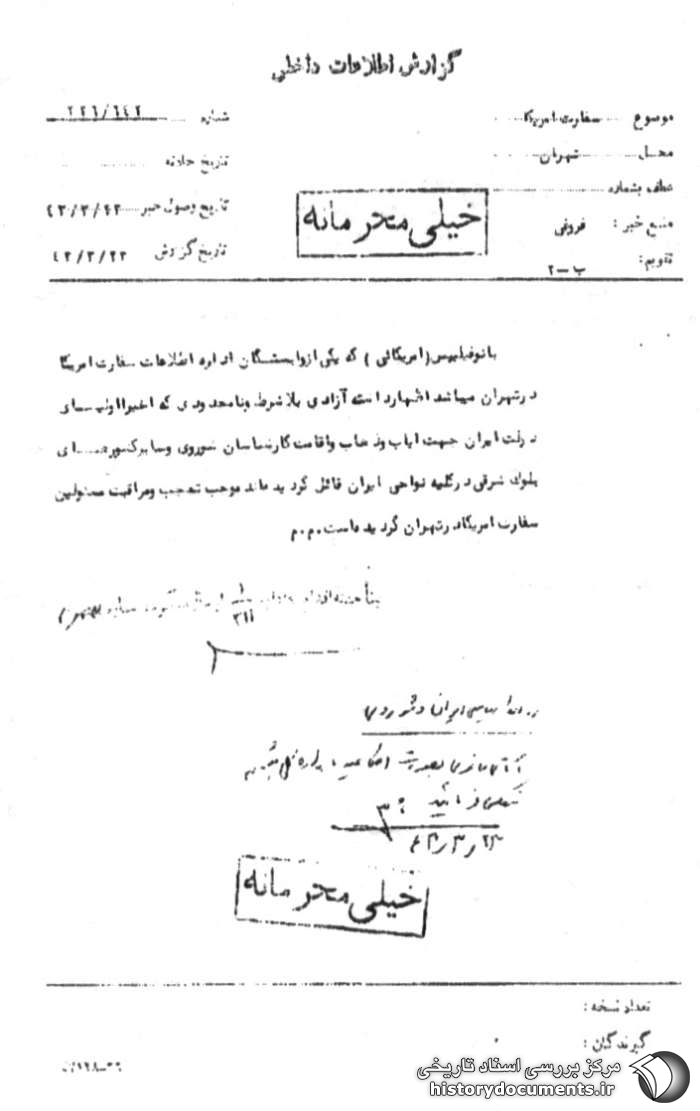 گزارش اطلاعات داخلی
موضوع سفارت امریکا
شماره ۲۲۶/۶۴۲
محل تهران
تاریخ حادثه
عطف بشماره
تاریخ وصول خبر ۴۳/۳/۲۳
منبع خبر : فروغی
تاریخ گزارش ۴۳/۳/۲۳
تقویم : ب-۲
خیلی محرمانه
بانو فیلیپس (امریکائی) که یکی از وابستگان اداره اطلاعات سفارت امریکا
در تهران میباشد اظهار داشته آزادی بلاشرط و نامحدودی که اخیرا اولیای
دولت ایران جهت ایاب و ذهاب و اقامت کارشناسان شوروی و سایر کشورهای
بلوک شرقی در کلیه نواحی ایران قائل گردیده‌اند موجب تعجب و مراقبت مسئولین
سفارت امریکا در تهران گردیده است. م.م
۳۱۱
روابط سیاسی ایران و شوروی
آقای
فرمائید
۲۳ ر ۳ ر ۴۳
خیلی محرمانه
تعداد نسخه :
گیرندگان :
مرکز بررسی اسناد تاریخی
historydocuments.ir